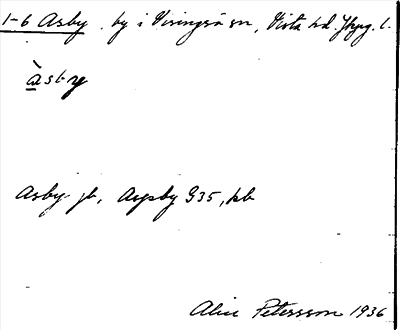 1-6 Asby. by i Visingsö sn, Vista hd. Jkpg. l.
àsby
Asby jb, Aspsby G35, kb
Alice Petersson 1936